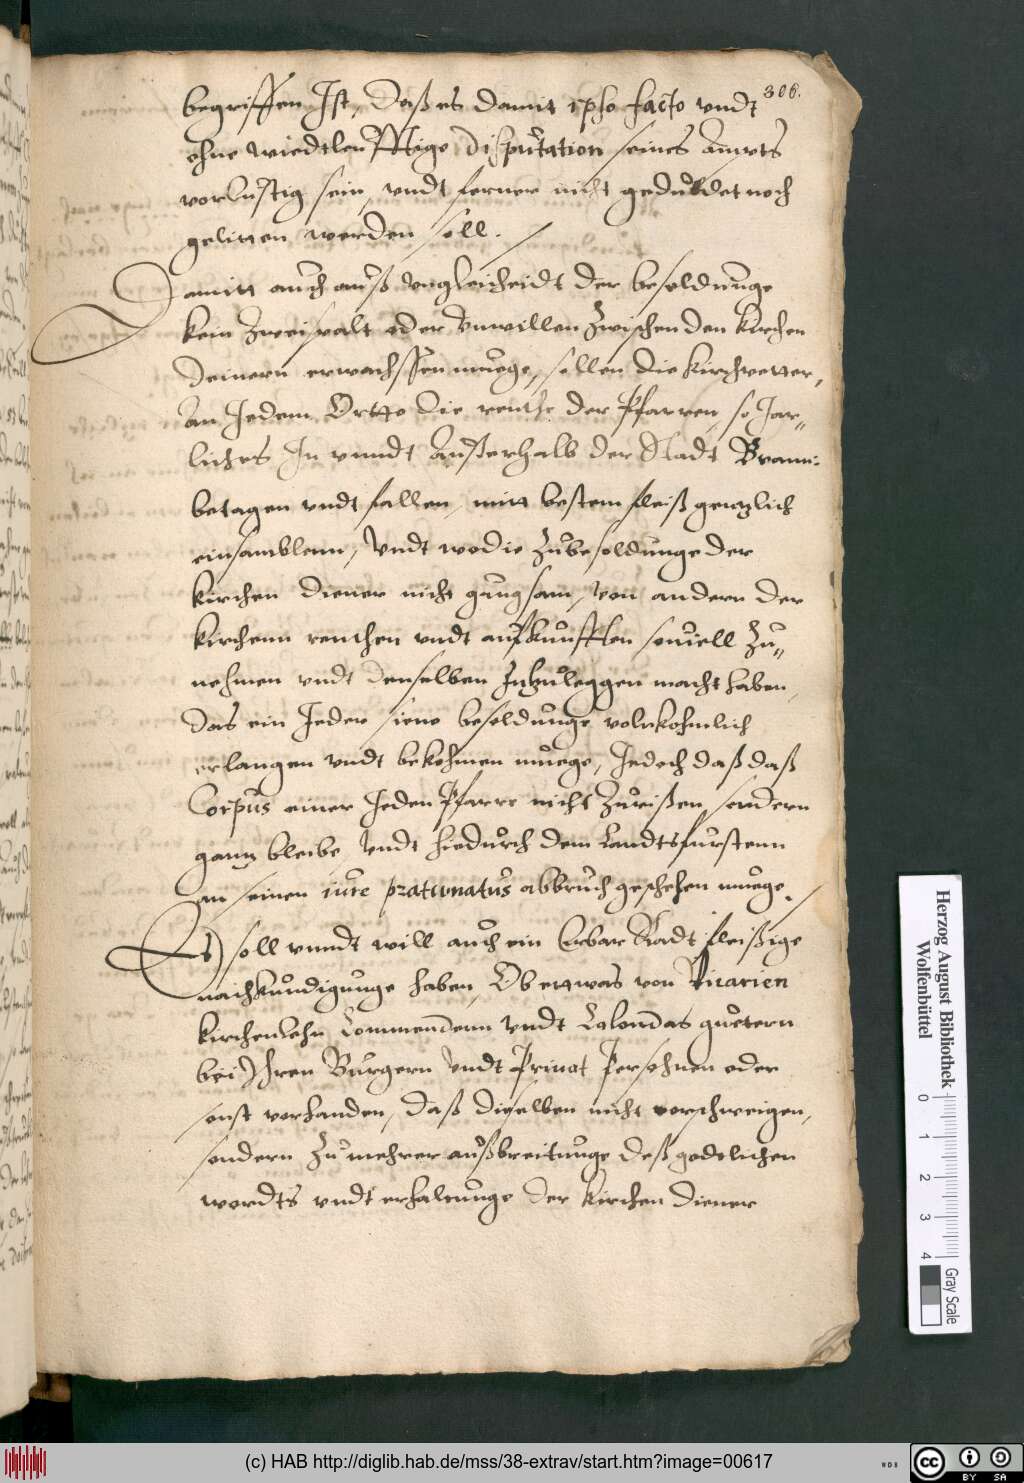 306.
begriffen Ist, Daß es damit ipso facto vndt
ohne wiedtleufftige disputation seines Ampts
vorlustig sein, vndt ferner nicht geduldet noch
gelitten werden soll.
Damitt auch auß vngleicheidt der besoldunge
kein Zweispalt oder Vnwillen Zwischen den Kirchen
deinern erwachssen muege, sollen die Kirchvetter,
An Jedem Ortte die renthe der Pfarren, so Jar-
liches In vnndt Außerhalb der Stadt Braun:
betagen vndt fallen, mitt bestem fleiß gentzlich
einsamblenn, Vndt wo die Zubesoldunge der
Kirchen diener nicht gnugsam, Von andern der
Kirchenn renthen vndt aufkunfften souiell Zu-
nehmen vndt denselben Zuzuleggen macht haben,
das ein Jeder siene besoldunge volnkohmlich
erlangen vndt bekohmen muege, Jedoch daß daß
Corpus einer Jeden Pfarre nicht Zurißen, sondern
gantz bleibe Vndt hiedurch dem Landtsfurstenn
an seinen iure patronatus abbruch geschehen muege.
Es soll vnndt will auch ein Erbar Radt fleißige
nachkundigunge haben, Ob ettwas von Vicarien
Kirchenlehn Commendenn Vndt Calendas guetern
bei Ihren Burgern Vndt Priuat Persohnen oder
sonst vorhanden, daß dieselben nicht vorschweigen,
sondern Zu mehrer außbreitunge deß godtlichen
wordts vndt erhaltunge der Kirchen diener
Herzog August Bibliothek
Wolfenbüttel
0 1 2 3 4
Gray Scale
(c) HAB http://diglib.hab.de/mss/38-extrav/start.htm?image=00617
WDB
CC BY SA